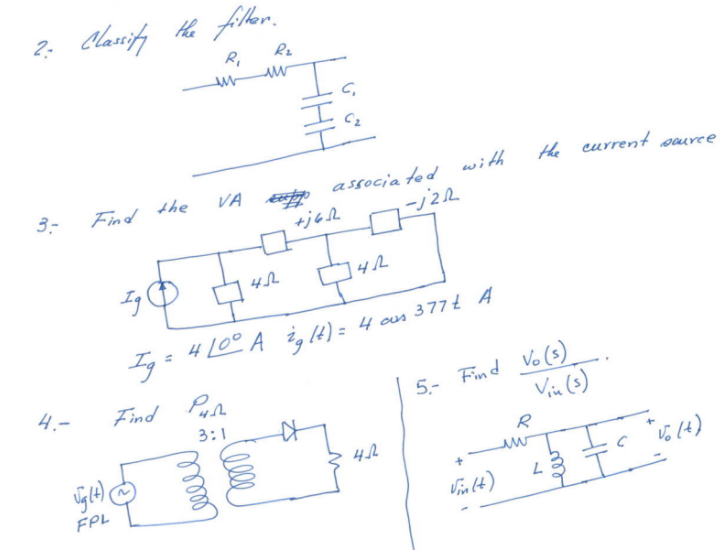 2.- Classify the filter.
R₁ R₂
C₁
C₂
3.- Find the VA associated with the current source
+j6Ω -j2Ω
4Ω 4Ω
Ig
Ig = 4∠0° A ig(t) = 4 cos 377t A
4.- Find P4Ω
3:1
4Ω
Vg(t)
FPL
5.- Find Vo(s)
Vin(s) .
R
+ +
L C Vo(t)
Vin(t)
- -